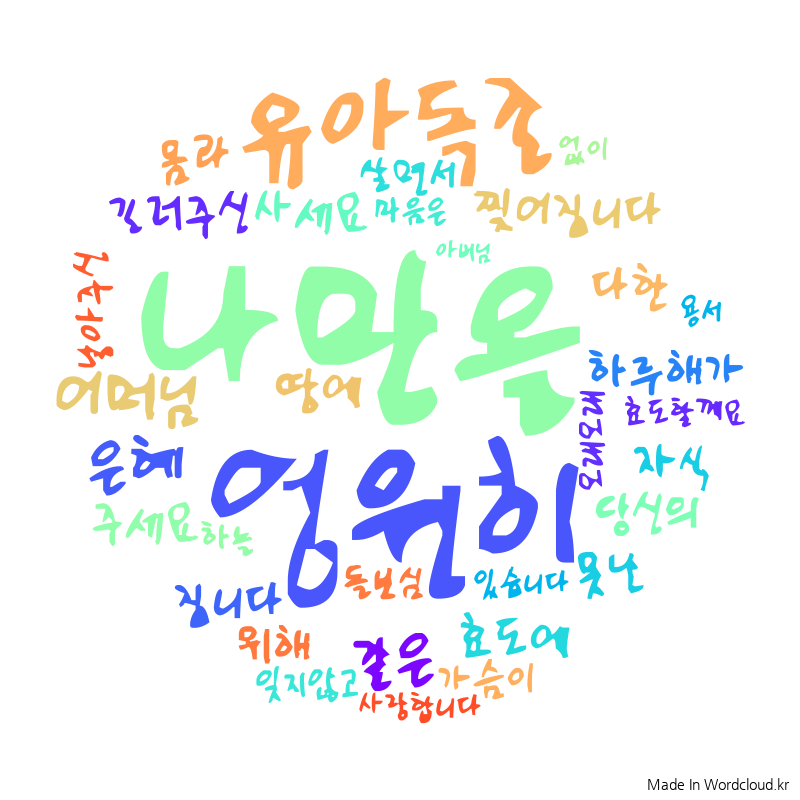 유아독존
몸과
없이
살면서
길러주신
사세요
마음은
찢어집니다
아버님
나만은
다한
용서
하루해가
어머님
땅에
효도할께요
은혜
자식
영원히
당신의
주세요
하늘
돌보심
있습니다
못난
집니다
위해
같은
효도에
잊지않고
가슴이
사랑합니다
Made In Wordcloud.kr